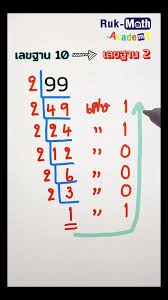 Ruk-Math
Academy
เลขฐาน 10 → เลขฐาน 2
2 99
2 49 เศษ 1
2 24 " 1
2 12 " 0
2 6 " 0
2 3 " 0
1 " 1